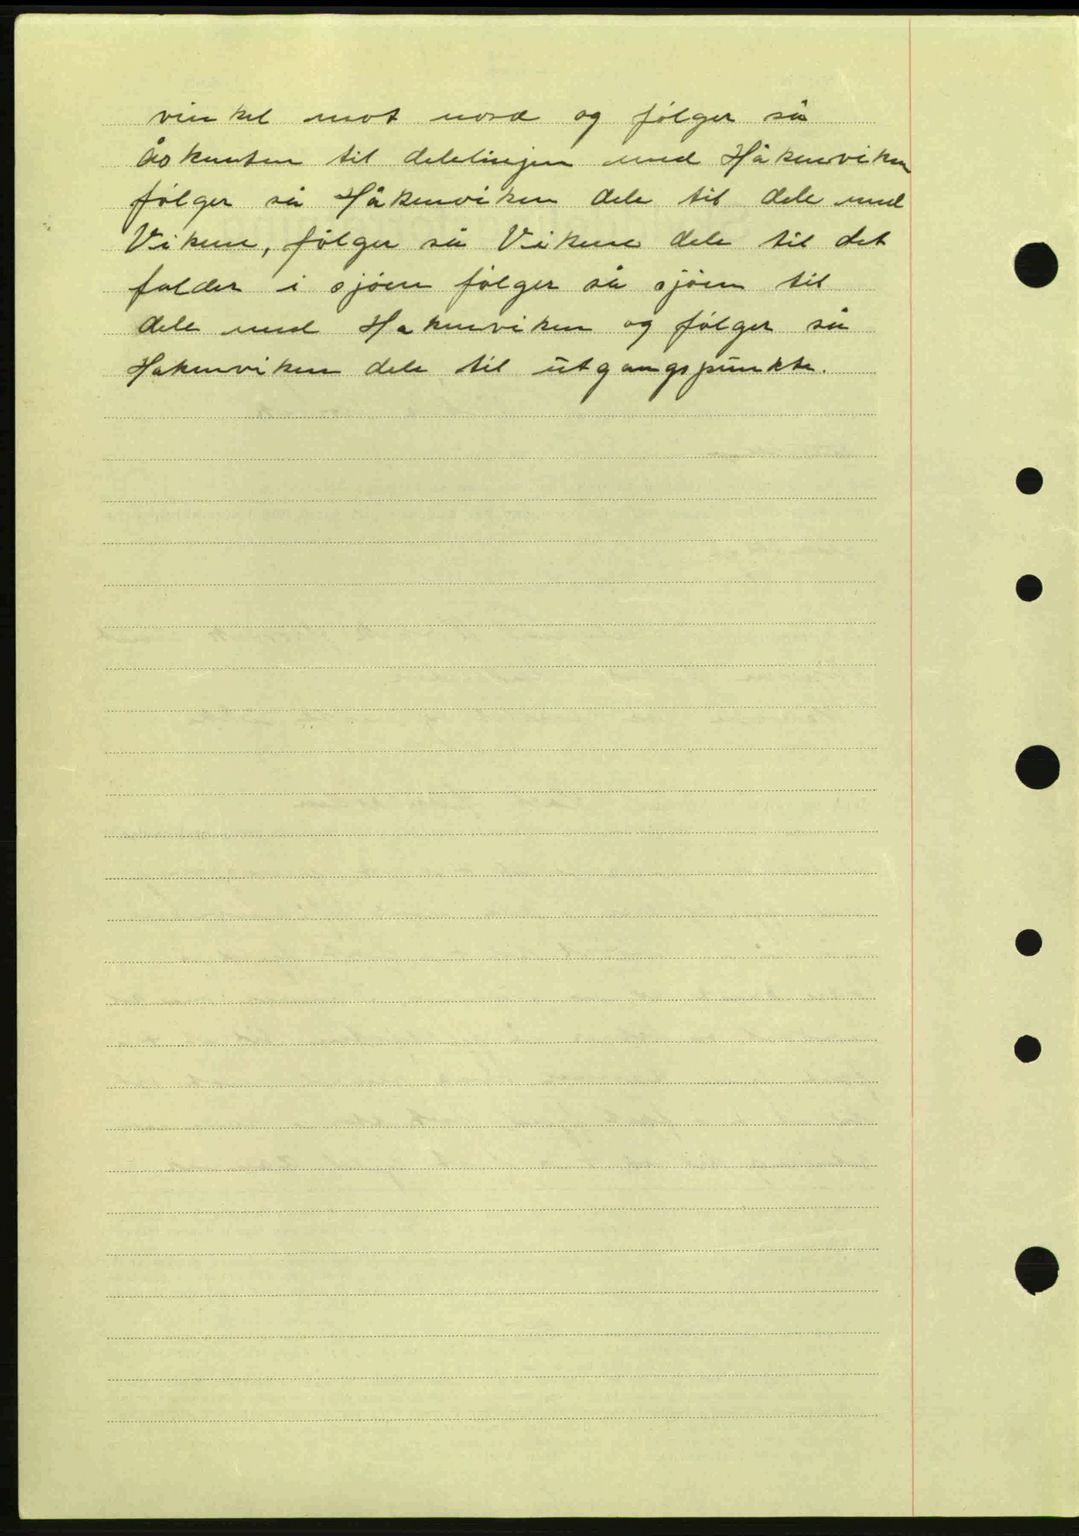 vinkel mot nord og følger så
åskanten til delelinjen med Håkenviken
følger så Håkenviken dele til dele med
Vikene, følger så Vikene dele til det
falder i sjøen følger så sjøen til
dele med Hakenviken og følger så
Hakenviken dele til utgangspunkte.